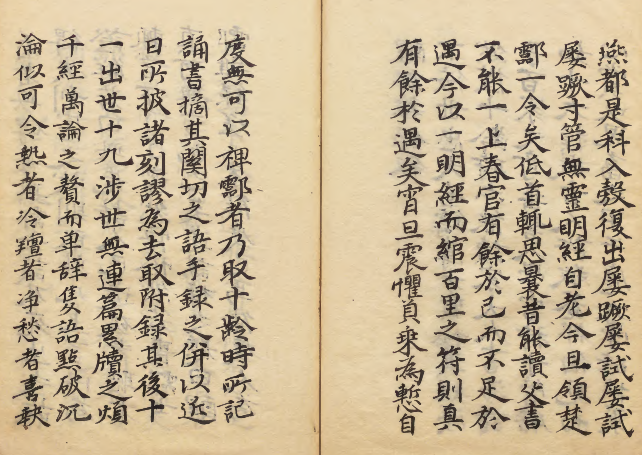 燕都是科入彀復出屡蹶屡試屡試
屡蹶寸管無靈明經自老今且領楚
酃一令矣低首輒思曩昔能讀父書
不能一上春官有餘於己而不足於
遇今以一明經而綰百里之符則真
有餘於遇矣宵旦震懼負乘為慙自
度無可以裨酃者乃取十齡時所記
誦書摘其闗切之語手録之併以近
日所披諸刻謬為去取附録其後十
一出世十九涉世無連篇累牘之煩
千經萬論之贅而单辞隻語點破沉
淪似可令熱者冷羶者净愁者喜